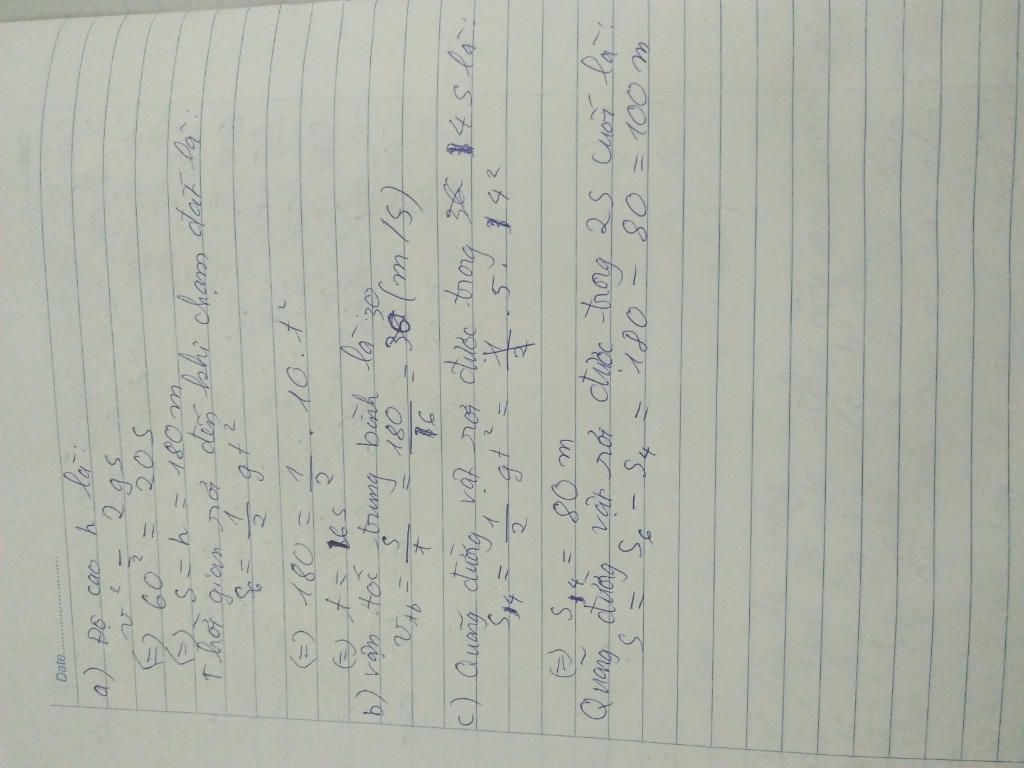 Date
a) Độ cao h là:
v² = 2gs
(=) 60² = 20s
(=) s = h = 180m
Thời gian rơi đến khi chạm đất là:
S₆ = 1/2 gt²
(=) 180 = 1/2 . 10 . t²
(=) t = 6s
b) vận tốc trung bình là:
v_tb = s/t = 180/6 = 30 (m/s)
c) Quãng đường vật rơi được trong 4s là:
S₄ = 1/2 gt² = 5 . 4²
(=) S₄ = 80m
Quãng đường vật rơi được trong 2s cuối là:
S = S₆ - S₄ = 180 - 80 = 100m